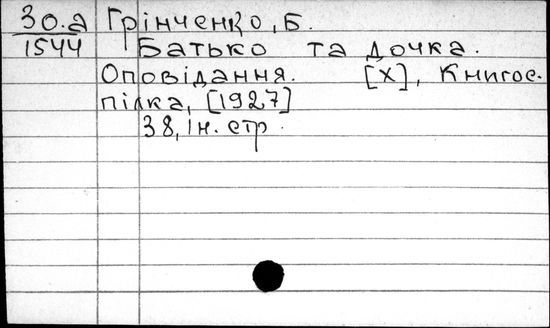 30.а Грінченко, Б.
1544 Батько та дочка.
Оповідання. [Х], Книгос-
пілка, [1927]
38, Ін. стр.